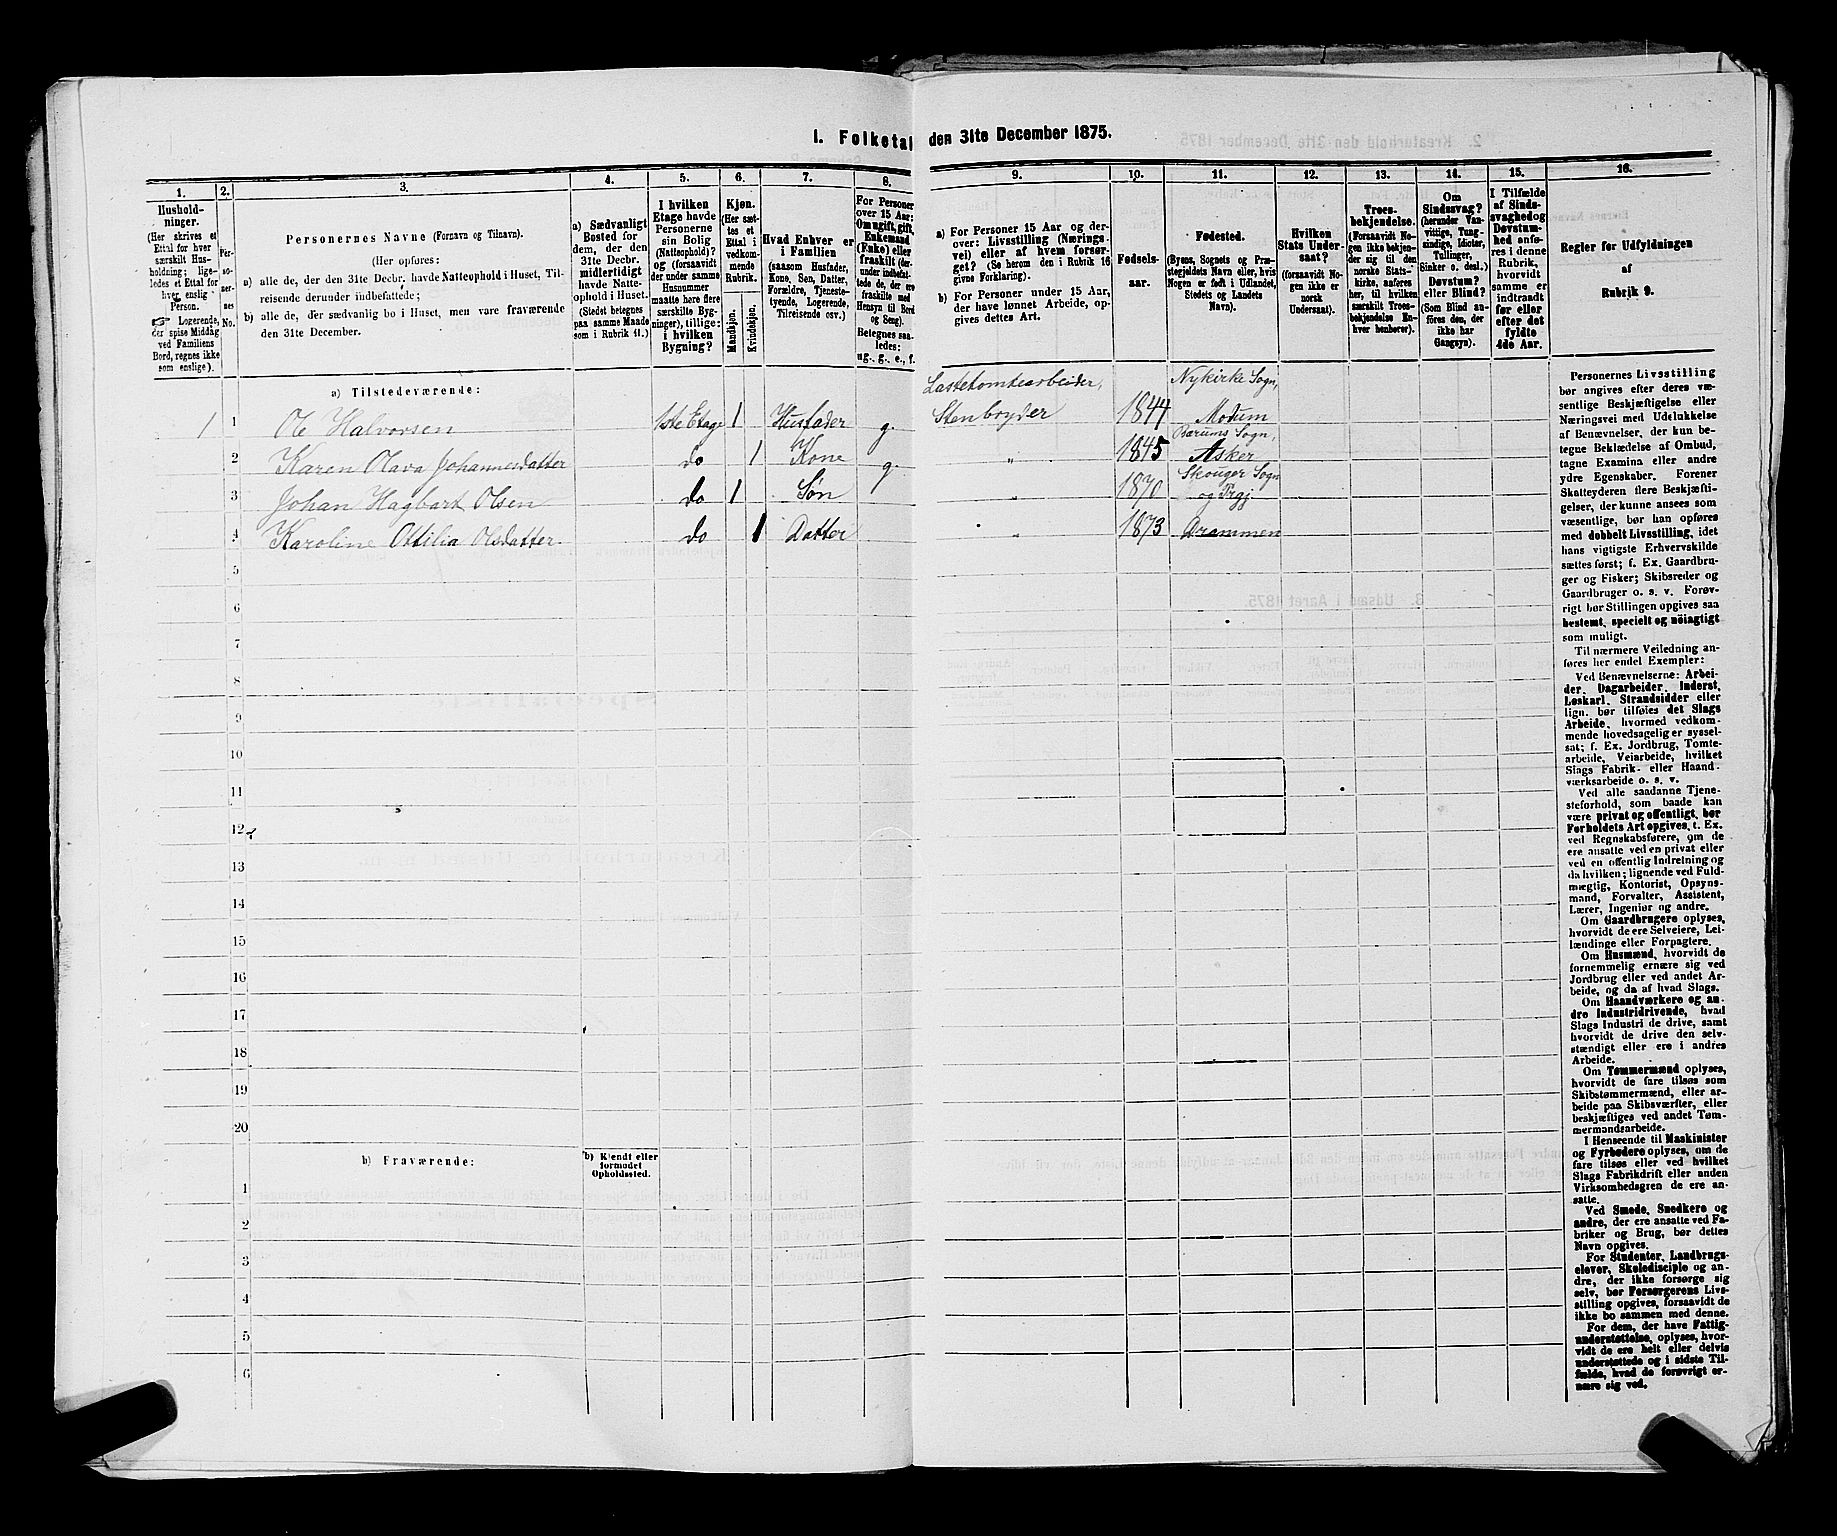 1. Folketal den 31te December 1875.
1.
2.
3.
4.
5.
6.
7.
8.
9.
10.
11.
12.
13.
14.
15.
16.
Hushold-
ninger.
(Her skrives et
Ettal for hver
særskilt Hus-
holdning; lige-
ledes et Ettal for
hver enslig
Person.
☞ Logerende,
der spise Middag
ved Familiens
Bord, regnes ikke
som enslige).
Per-
so-
ner-
nes
No.
Personernes Navne (Fornavn og Tilnavn).
(Her opføres:
a) alle de, der den 31te Decbr. havde Natteophold i Huset, Til-
reisende derunder indbefattede;
b) alle de, der sædvanlig bo i Huset, men vare fraværende
den 31te December.
a) Sædvanligt
Bosted for
dem, der den
31te Decbr.
midlertidigt
havde Natte-
ophold i Huset.
(Stedet betegnes
paa samme Maade
som i Rubrik 11.)
I hvilken
Etage havde
Personerne
sin Bolig
(Natteophold)?
og (forsaavidt
der under samme
Husnummer
maatte høre flere
særskilte Byg-
ninger), tillige:
i hvilken
Bygning?
Kjøn.
(Her sæt-
tes et
Ettal i
vedkom-
mende
Rubrik.
Mandkjøn.
Kvindekjøn.
Hvad Enhver er
i Familien
(saasom Husfader,
Kone, Søn, Datter,
Forældre, Tjeneste-
tyende, Logerende,
Tilreisende osv.)
For Personer
over 15 Aar:
Om ugift, gift,
Enkemand
(Enke) eller
fraskilt (der-
under indbefat-
tede de, der ere
fraskilte med
Hensyn til Bord
og Seng).
Betegnes saa-
ledes:
ug., g., e., f.
a) For Personer 15 Aar og der-
over: Livsstilling (Nærings-
vei) eller af hvem forsør-
get? (Se herom den i Rubrik 16
givne Forklaring).
b) For Personer under 15 Aar,
der have lønnet Arbeide, op-
gives dettes Art.
Fødsels-
aar.
Fødested.
(Byens, Sognets og Præ-
stegjeldets Navn eller, hvis
Nogen er født i Udlandet,
Stedets og Landets
Navn).
Hvilken
Stats Under-
saat?
(forsaavidt No-
gen ikke er
norsk
Undersaat).
Troes-
bekjendelse.
(Forsaavidt No-
gen ikke bekjen-
der sig til den
norske Stats-
kirke, anføres
her, til hvilken
særskilt Troes-
bekjendelse En-
hver henhører).
Om
Sindssvag?
(herunder Van-
vittige, Tung-
sindige, Idioter,
Tullinger,
Sinker o. desl.)
Døvstum?
eller Blind?
(Som Blind an-
føres den, der
ikke har
Gangsyn).
I Tilfælde
af Sinds-
svaghed og
Døvstum-
hed anfø-
res i denne
Rubrik,
hvorvidt
samme er
indtraadt
før eller
efter det
fyldte
4de Aar.
Regler for Udfyldningen
af
Rubrik 9.
a) Tilstedeværende:
Lastetomtearbeider, Nykirke Sogn,
1 1 Ole Halvorsen 1ste Etage 1 Husfader g. Stenbryder 1844 Modum
Bærums Sogn,
2 Karen Olava Johannesdatter do 1 Kone g. " 1845 Asker
Skouger Sogn
3 Johan Hagbart Olsen do 1 Søn " 1870 og Prgj
4 Karoline Ottilia Olsdatter do 1 Datter " 1873 Drammen
5
6
7
8
9
10
11
12
13
14
15
16
17
18
19
20
b) Fraværende:
b) Kjendt eller
formodet
Opholdssted.
1
2
3
4
5
6
Personernes Livsstilling
bør angives efter deres væ-
sentlige Beskjæftigelse eller
Næringsvei med Udelukkelse
af Benævnelser, der kun be-
tegne Beklædelse af Ombud,
tagne Examina eller andre
ydre Egenskaber. Forener
Skatteyderen flere Beskjæfti-
gelser, der kunne ansees som
væsentlige, bør han opføres
med dobbelt Livsstilling, idet
hans vigtigste Erhvervskilde
sættes først; f. Ex. Gaardbru-
ger og Fisker; Skibsreder og
Gaardbruger o. s. v. Forøv-
rigt bør Stillingen opgives saa
bestemt, specielt og nøiagtigt
som muligt.
Til nærmere Veiledning an-
føres her endel Exempler:
Ved Benævnelserne: Arbei-
der, Dagarbeider, Inderst,
Løskarl, Strandsidder eller
lign. bør tilføies det Slags
Arbeide, hvormed vedkom-
mende hovedsagelig er syssel-
sat; f. Ex. Jordbrug, Tomte-
arbeide, Veiarbeide, hvilket
Slags Fabrik- eller Haand-
værksarbeide o. s. v.
Ved alle saadanne Tjene-
steforhold, som baade kan
være privat og offentligt, bør
Forholdets Art opgives, t. Ex.
ved Regnskabsførere, om de
ere ansatte ved en privat eller
ved en offentlig Indretning og
da hvilken; lignende ved Fuld-
mægtig, Kontorist, Opsyns-
mand, Forvalter, Assistent,
Lærer, Ingeniør og andre.
Om Gaardbrugere oplyses,
hvorvidt de ere Selveiere, Lei-
lændinge eller Forpagtere.
Om Husmænd, hvorvidt de
fornemmelig ernære sig ved
Jordbrug eller ved andet Ar-
beide, og da af hvad Slags.
Om Haandværkere og an-
dre Industridrivende, hvad
Slags Industri de drive, samt
hvorvidt de drive den selv-
stændigt eller ere i andres
Arbeide.
Om Tømmermænd oplyses,
hvorvidt de fare tilsøs som
Skibstømmermænd, eller ar-
beide paa Skibsværfter, eller
beskjæftiges ved andet Tøm-
mermandsarbeide.
I Henseende til Maskinister
og Fyrbødere oplyses, om de
fare tilsøs eller ved hvilket
Slags Fabrikdrift eller anden
Virksomhedsgren de ere an-
satte.
Ved Smede, Snedkere og
andre, der ere ansatte ved Fa-
briker og Brug, bør dettes
Navn opgives.
For Studenter, Landbrugs-
elever, Skoledisciple og an-
dre, der ikke forsørge sig
selv, bør Forsørgerens Livs-
stilling opgives, forsaavidt de
ikke bo sammen med denne.
For dem, der have Fattig-
understøttelse, oplyses, hvor-
vidt de ere helt eller delvis
understøttede og i sidste Til-
fælde, hvad de forøvrigt er-
nære sig ved.